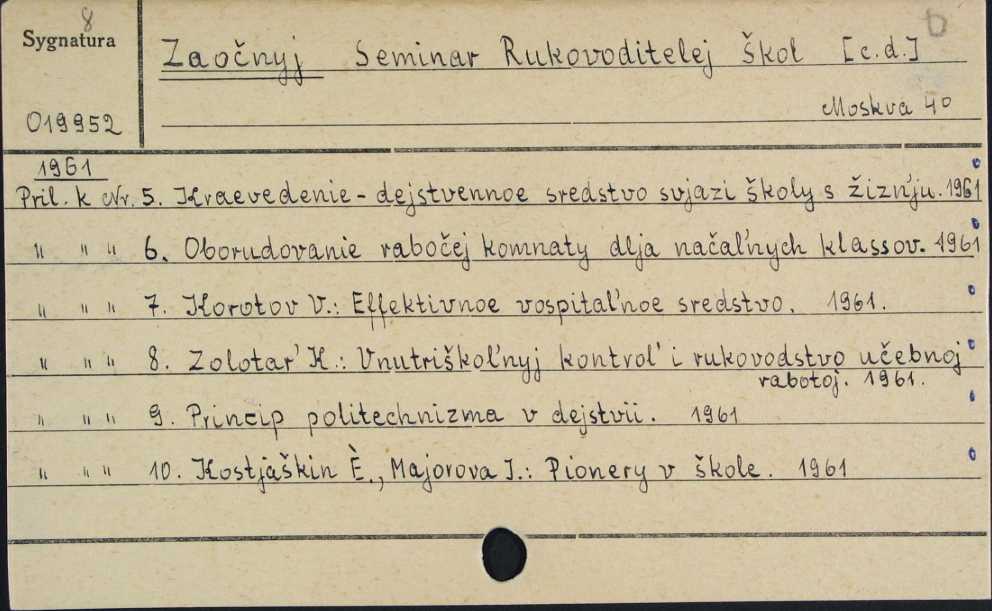 8
Sygnatura
019952
Zaočnyj Seminar Rukovoditelej škol [c.d.]
Moskva 4°
1961
Pril. k Nr. 5. Kraevedenie - dejstvennoe sredstvo svjazi školy s žizn'ju. 1961
" " " 6. Oborudovanie rabočej komnaty dlja načal'nych klassov. 1961
" " " 7. Korotov V.: Effektivnoe vospital'noe sredstvo. 1961.
" " " 8. Zolotar' K.: Vnutriškol'nyj kontrol' i rukovodstvo učebnoj
rabotoj. 1961.
" " " 9. Princip politechnizma v dejstvii. 1961
" " " 10. Kostjaškin È., Majorova I.: Pionery v škole. 1961